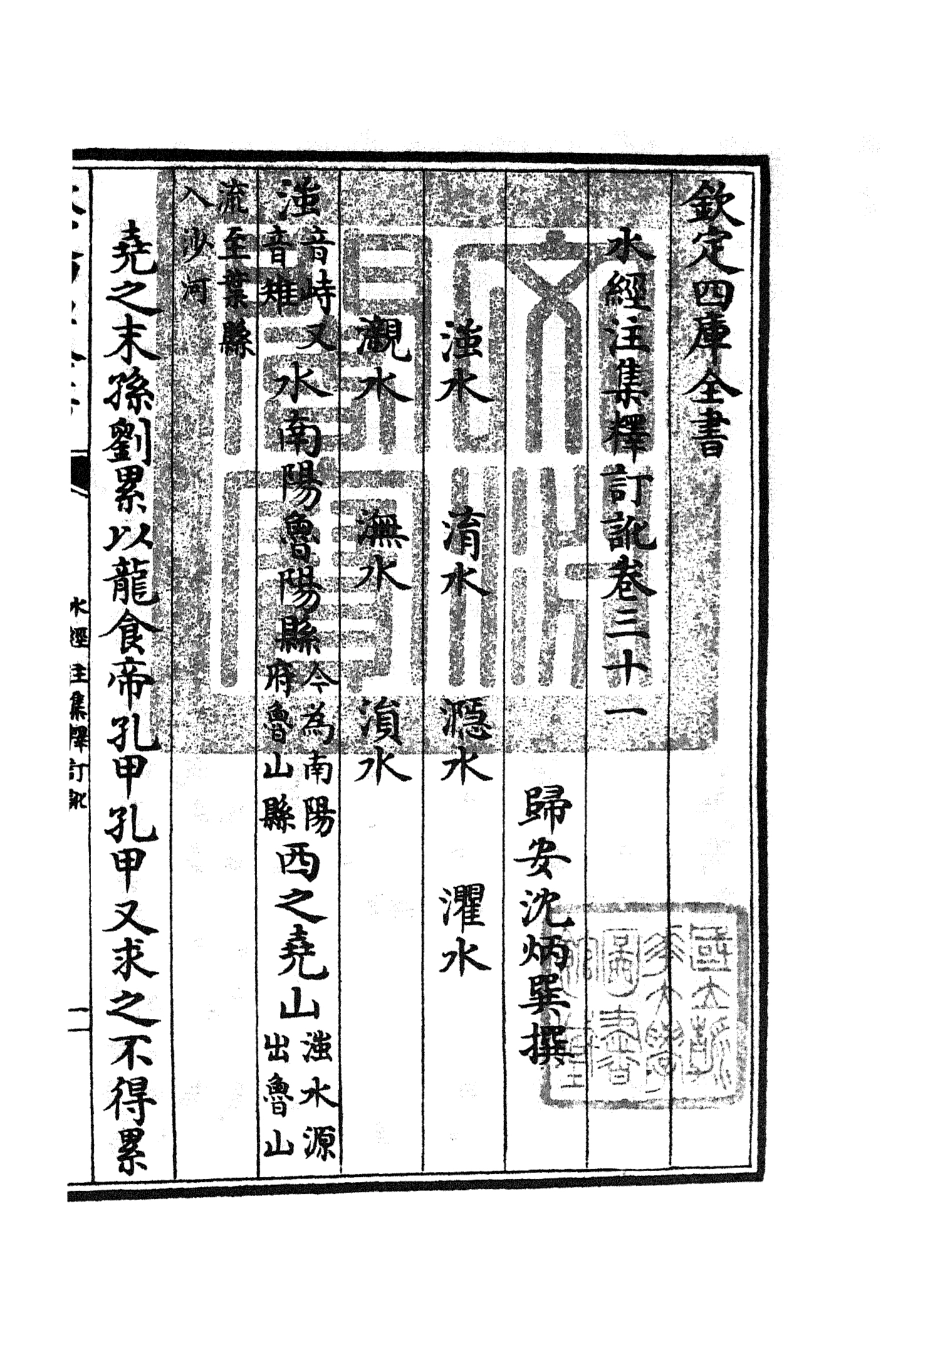 欽定四庫全書
水經注集釋訂訛卷三十一
歸安沈炳巽撰
滍水 淯水 㶏水 灈水
灈水 潕水 溳水
滍音峙又音雉水南陽魯陽縣今為南陽府魯山縣西之堯山滍水源出魯山
流至葉縣入沙河
堯之末孫劉累以龍食帝孔甲孔甲又求之不得累
水經注集釋訂訛
一